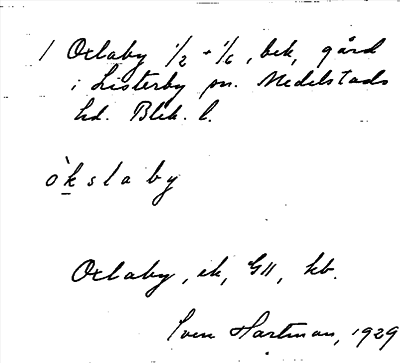 1 Oxlaby 1/2 + 1/6, bek, gård
i Listerby sn. Medelstads
hd. Blek. l.
òkslaby
Oxlaby, ek, GII, kb.
Sven Hartman, 1929